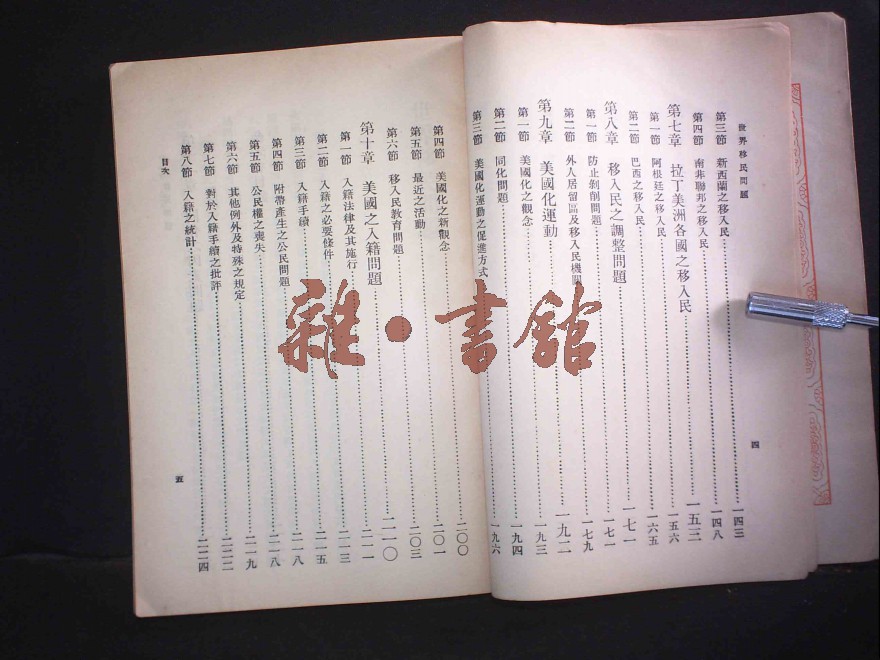 世界移民問題
第三節 新西蘭之移入民……一四三
第四節 南非聯邦之移入民……一四八
第七章 拉丁美洲各國之移入民……一五三
第一節 阿根廷之移入民……一五六
第二節 巴西之移入民……一六五
第八章 移入民之調整問題……一七一
第一節 防止剝削問題……一七一
第二節 外人居留區及移入民機關……一七九
第九章 美國化運動……一九二
第一節 美國化之觀念……一九三
第二節 同化問題……一九四
第三節 美國化運動之促進方式……一九六
四
第四節 美國化之新觀念……二〇〇
第五節 最近之活動……二〇一
第六節 移入民教育問題……二〇三
第十章 美國之入籍問題……二一〇
第一節 入籍法律及其施行……二一一
第二節 入籍之必要條件……二一三
第三節 入籍手續……二一五
第四節 附帶產生之公民問題……二一八
第五節 公民權之喪失……二一八
第六節 其他例外及特殊之規定……二一九
第七節 對於入籍手續之批評……二二二
第八節 入籍之統計……二二四
目次
五
雜·書館